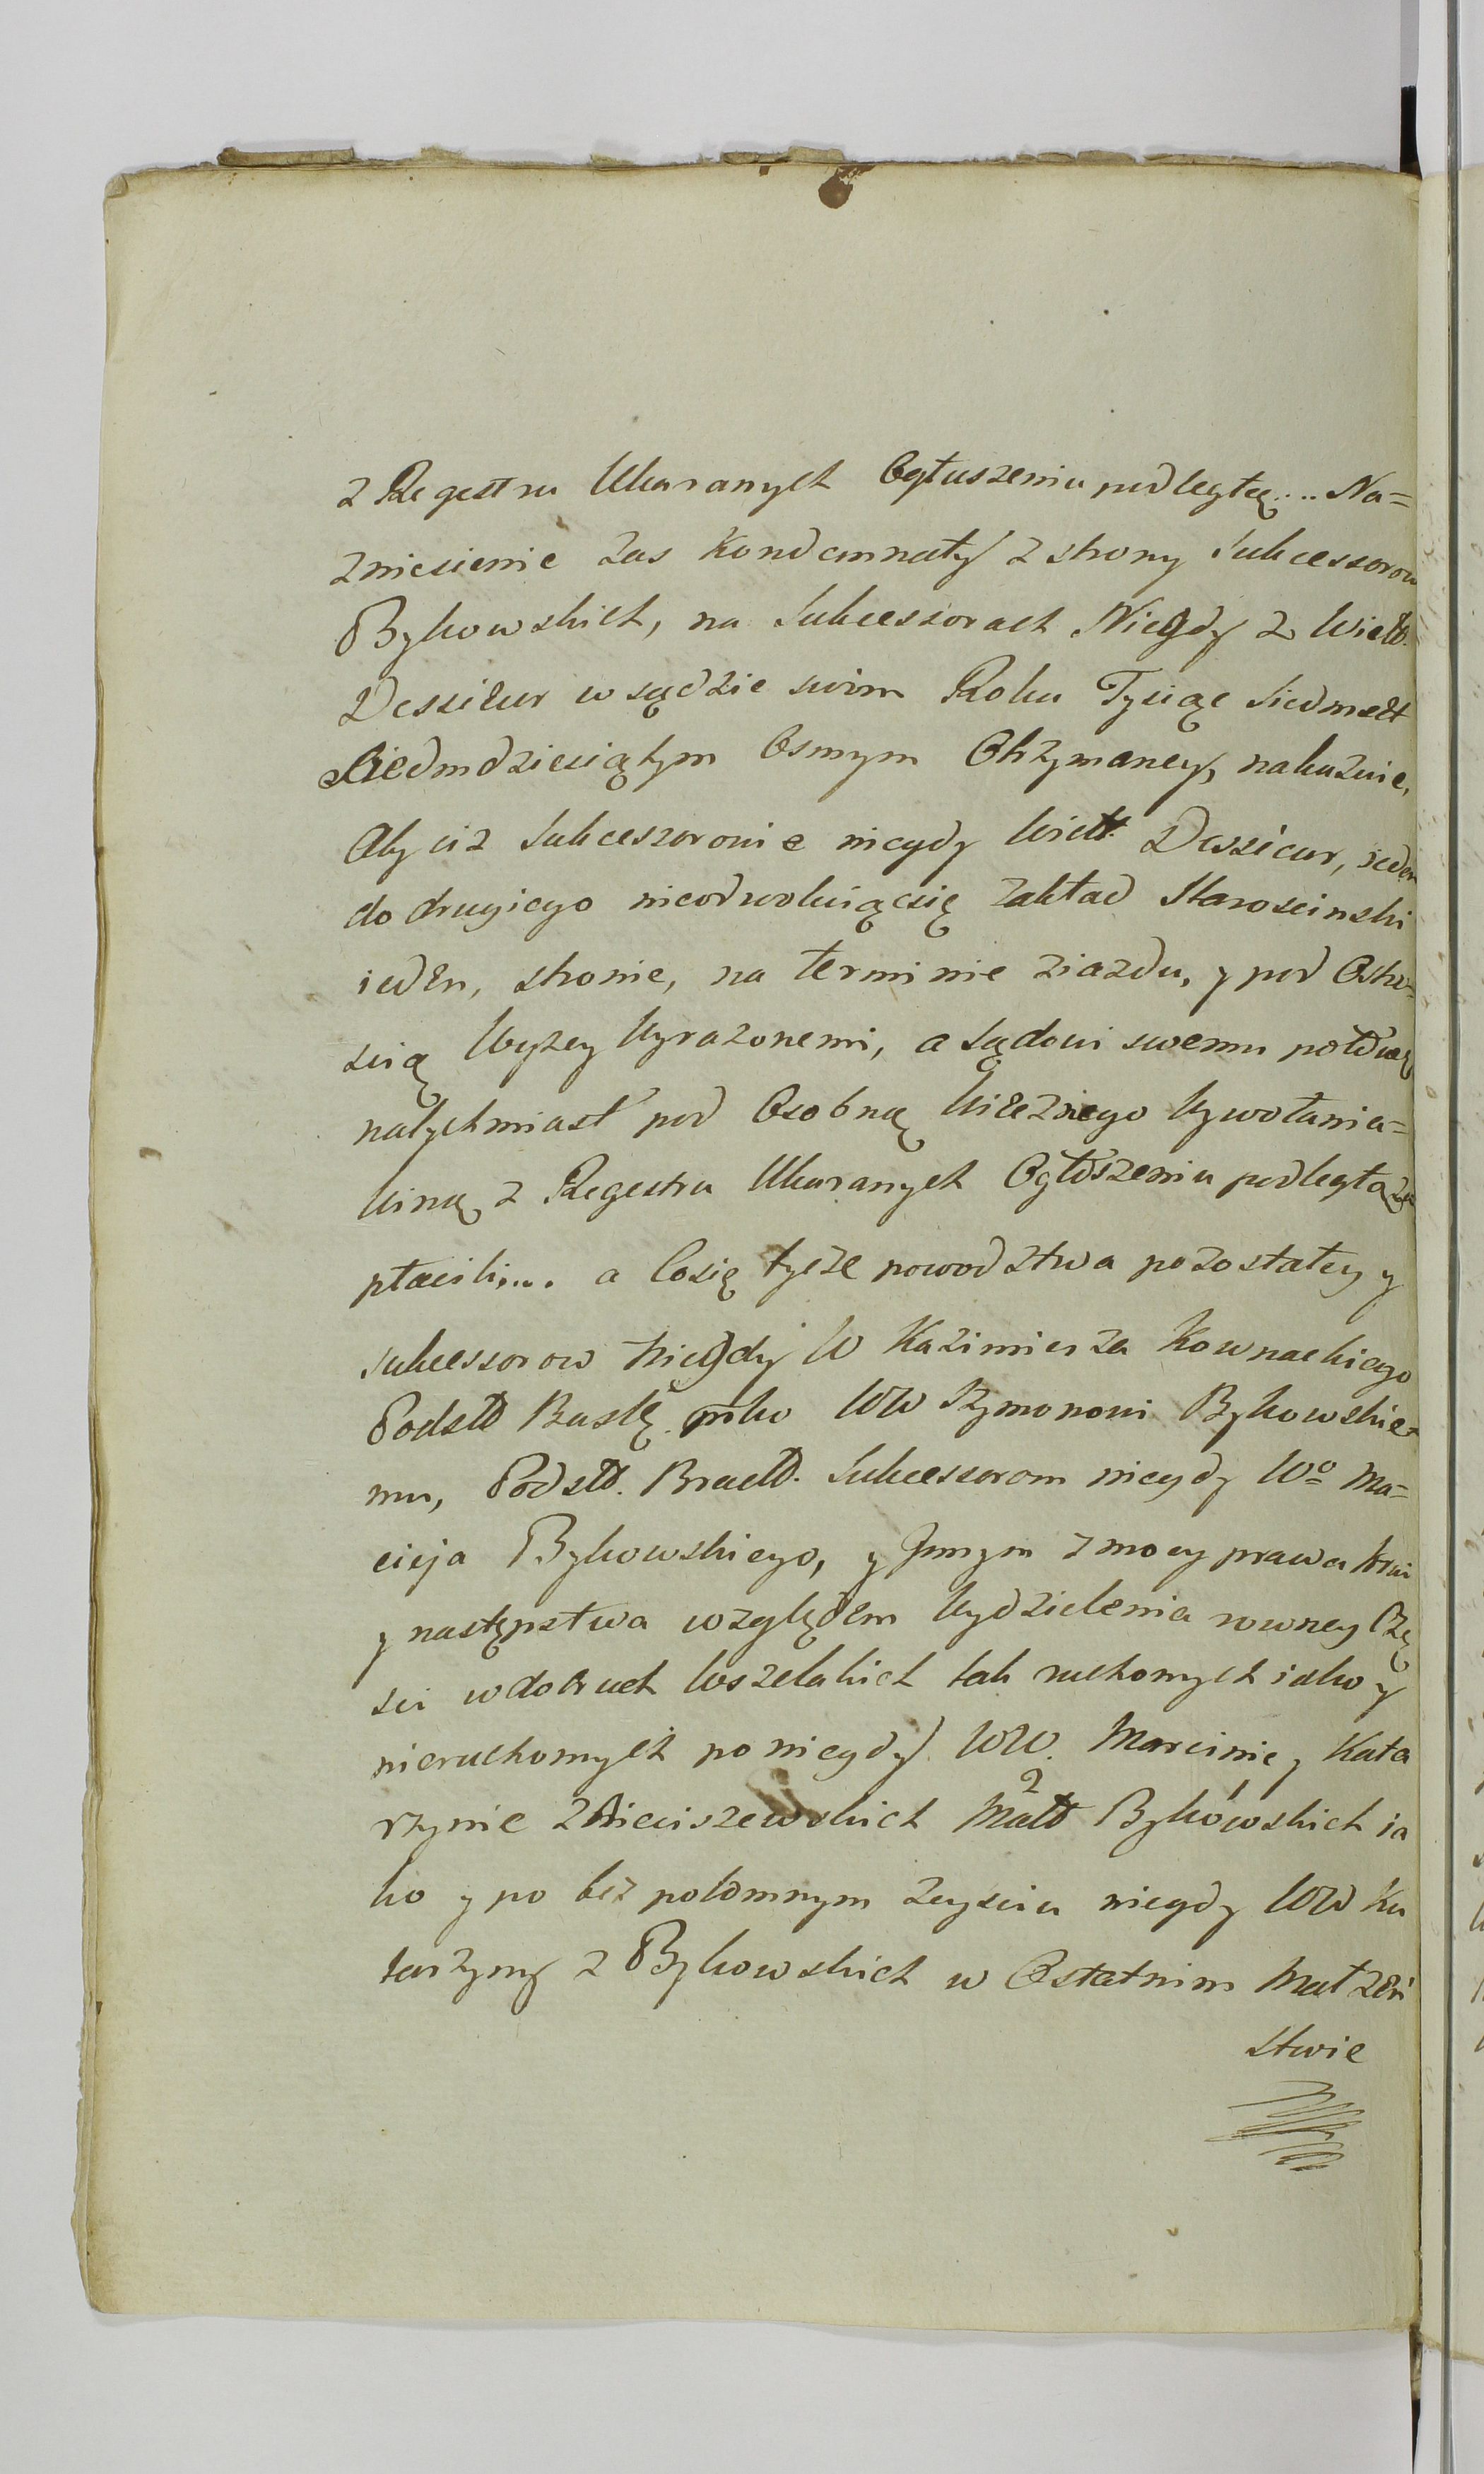 z Regestru Ukaranych Ogłuszeniu podległą.... Na=
zniesienie zas Kondemnaty z strony Sukcessorow
Bykowskich, na Sukcessorach Niegdy z Wiełł.
Dessieur w sądzie swim Roku Tysiąc Siedmset
Siedmdziesiątym Osmym Otrzymaney, nakazuie,
Aby ciz Sukcessorowie niegdy Wiełł Dessieur, ieden
do drugiego nieodwołuiąc się zakład Staroscinski
ieden, stronie, na terminie ziazdu, y pod Ostro=
scią Wyzey Wyrazonemi, a Sądowi swemu połowę
natychmiast pod Osobną Wiecznego Wywołania=
Winą z Regestru Ukaranych Ogłoszeniu podległą
płacili.... a Co się tycze powodztwa pozostałey y
Sukcessorow Niegdy W Kazimierza Kownackiego
Podsto Busk. pko WW Szymonowi Bykowskie=
mu, Podsto. Bracło. Sukcessorom niegdy Wo Ma=
cieja Bykowskiego, y Innym z mocy prawa krwi
y następstwa względem Wydzielenia rowney Czę
sci w dobrach Wszelakich tak ruchomych iako y
nieruchomych po niegdy WW. Marcinie y Kata
rzynie z Mieciszewskich 2 Małł Bykowskich ia
ko y po bez potomnym zeysciu niegdy WW Ka
tarzyny z Bykowskich w Ostatnim Małzen
stwie